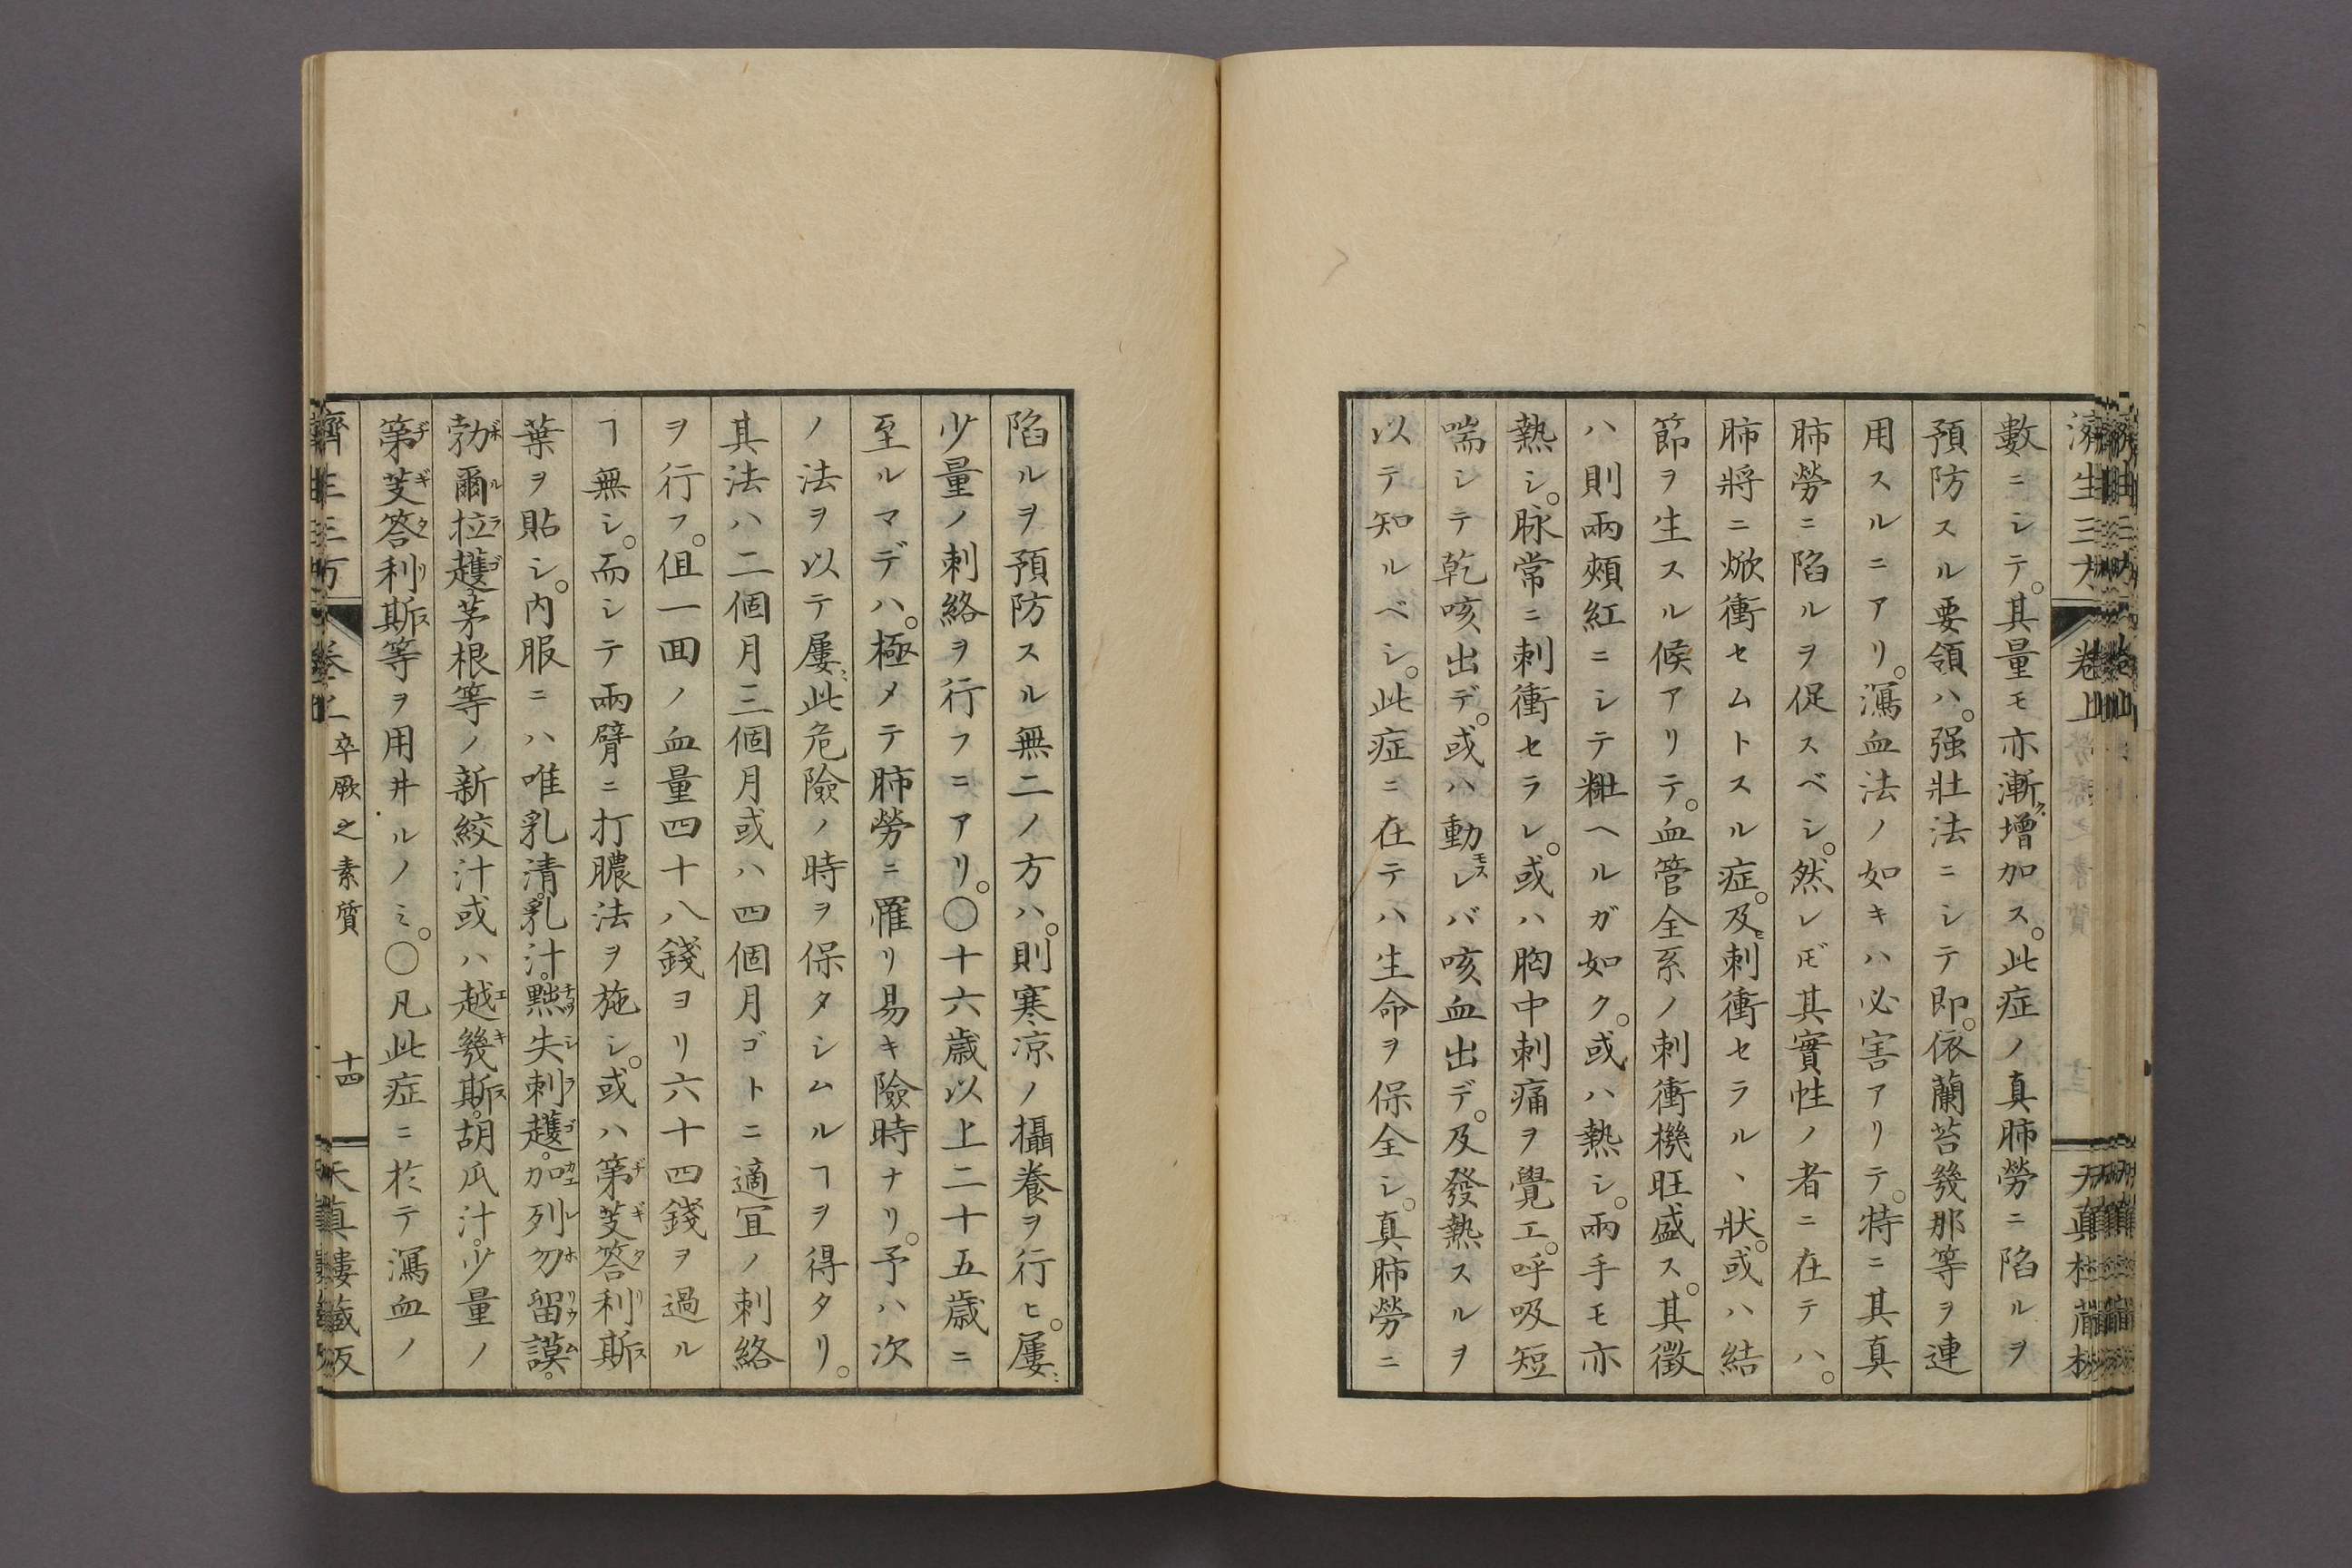 數ニシテ。其量モ亦漸ク。増加ス。此症ノ真肺勞ニ陷ルヲ
預防スル要領ハ。强壯法ニシテ即。依蘭苔幾那等ヲ連
用スルニアリ。瀉血法ノ如キハ必害アリテ。特ニ其真
肺勞ニ陷ルヲ促スベシ。然レ𪜈其實性ノ者ニ在テハ。
肺將ニ焮衝セムトスル症。及ヒ刺衝セラルヽ狀。或ハ結
節ヲ生スル候アリテ。血管全系ノ刺衝機旺盛ス。其徵
ハ則兩頰紅ニシテ粧ヘルガ如ク。或ハ熱シ。兩手モ亦
熱シ。脉常ニ刺衝セラレ。或ハ胸中刺痛ヲ覺エ。呼吸短
喘シテ乾咳出デ。或ハ動モスレバ咳血出デ。及發熱スルヲ
以テ知ルベシ。此症ニ在テハ生命ヲ保全シ。真肺勞ニ
陷ルヲ預防スル無二ノ方ハ。則寒凉ノ攝養ヲ行ヒ。屢〻
少量ノ刺絡ヲ行フニアリ。○十六歲以上二十五歲ニ
至ルマデハ。極メテ肺勞ニ罹リ易キ險時ナリ。予ハ次
ノ法ヲ以テ屢〻此危險ノ時ヲ保タシムルヿヲ得タリ。
其法ハ二個月三個月或ハ四個月ゴトニ適宜ノ刺絡
ヲ行フ。但一囬ノ血量四十八錢ヨリ六十四錢ヲ過ル
ヿ無シ。而シテ兩臂ニ打膿法ヲ施シ。或ハ第芰答利斯
葉ヲ貼シ。内服ニハ唯乳清。乳汁。㸃失刺護。加列勿留謨。
勃爾拉護。茅根等ノ新絞汁或ハ越幾斯。胡瓜汁。少量ノ
第芰答利斯等ヲ用井ルノミ。○凡此症ニ於テ瀉血ノ
濟生三方 卷上 卒厥之素質 十四 天真樓藏板